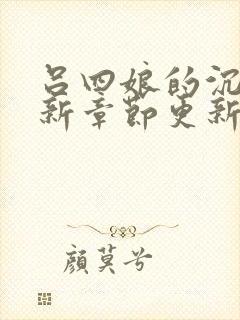 吕四娘的沉
新章节更新
颜莫兮